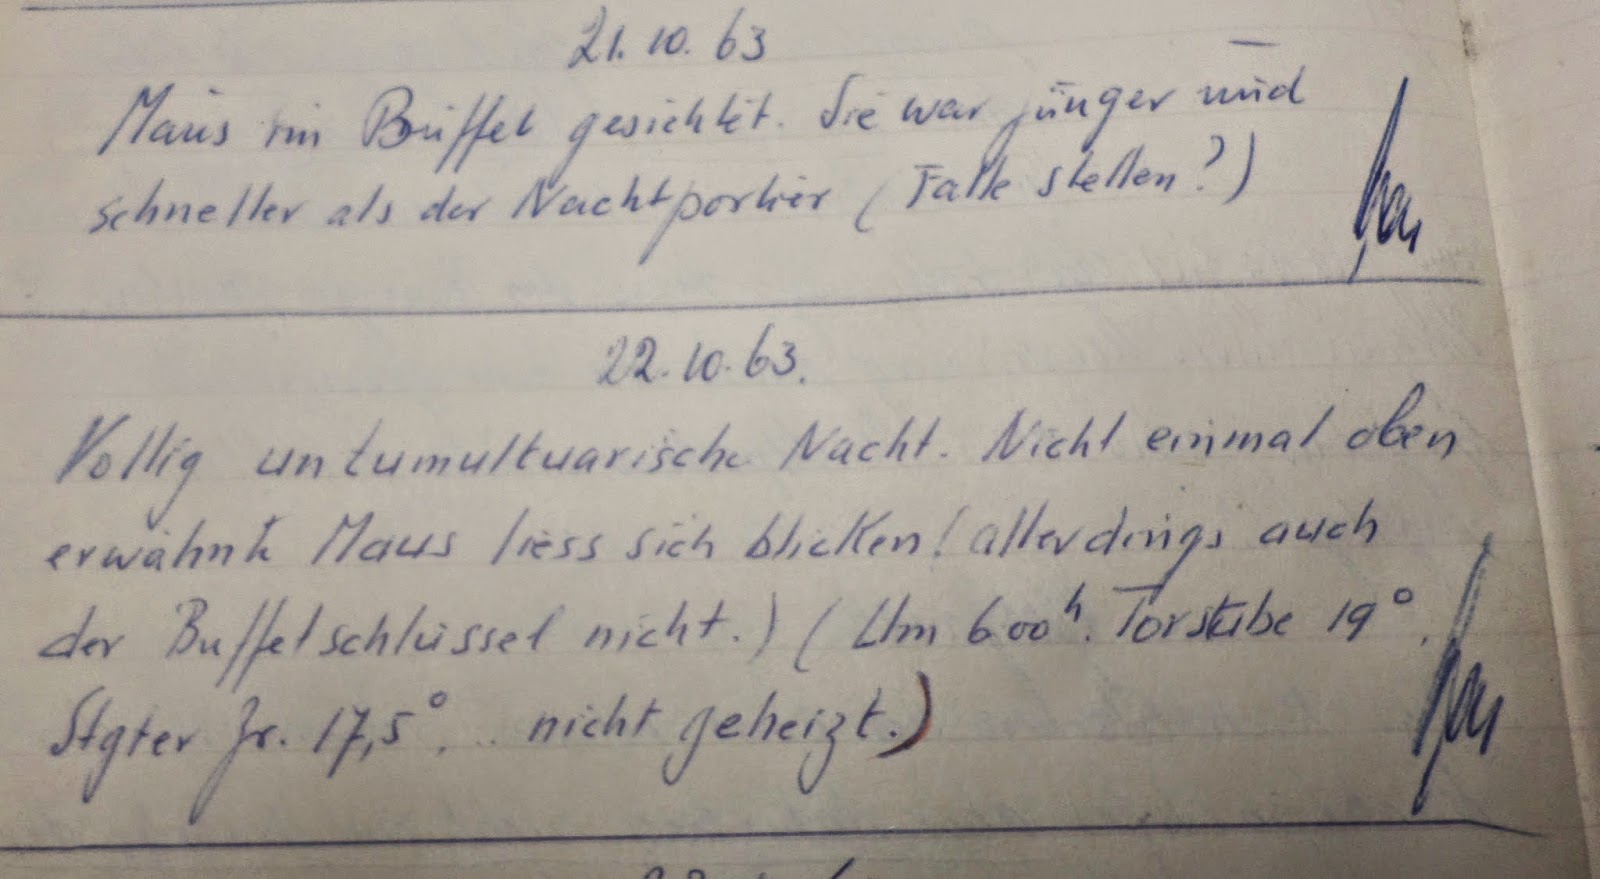 21.10.63
Maus im Büffet gesichtet. Sie war jünger und
schneller als der Nachtportier (Falle stellen?)
22.10.63.
Völlig untumultuarische Nacht. Nicht einmal oben
erwähnte Maus liess sich blicken! allerdings auch
der Buffetschlüssel nicht.) (Um 600h. Torstube 19°.
Stgter Zr. 17,5°. .. nicht geheizt.)